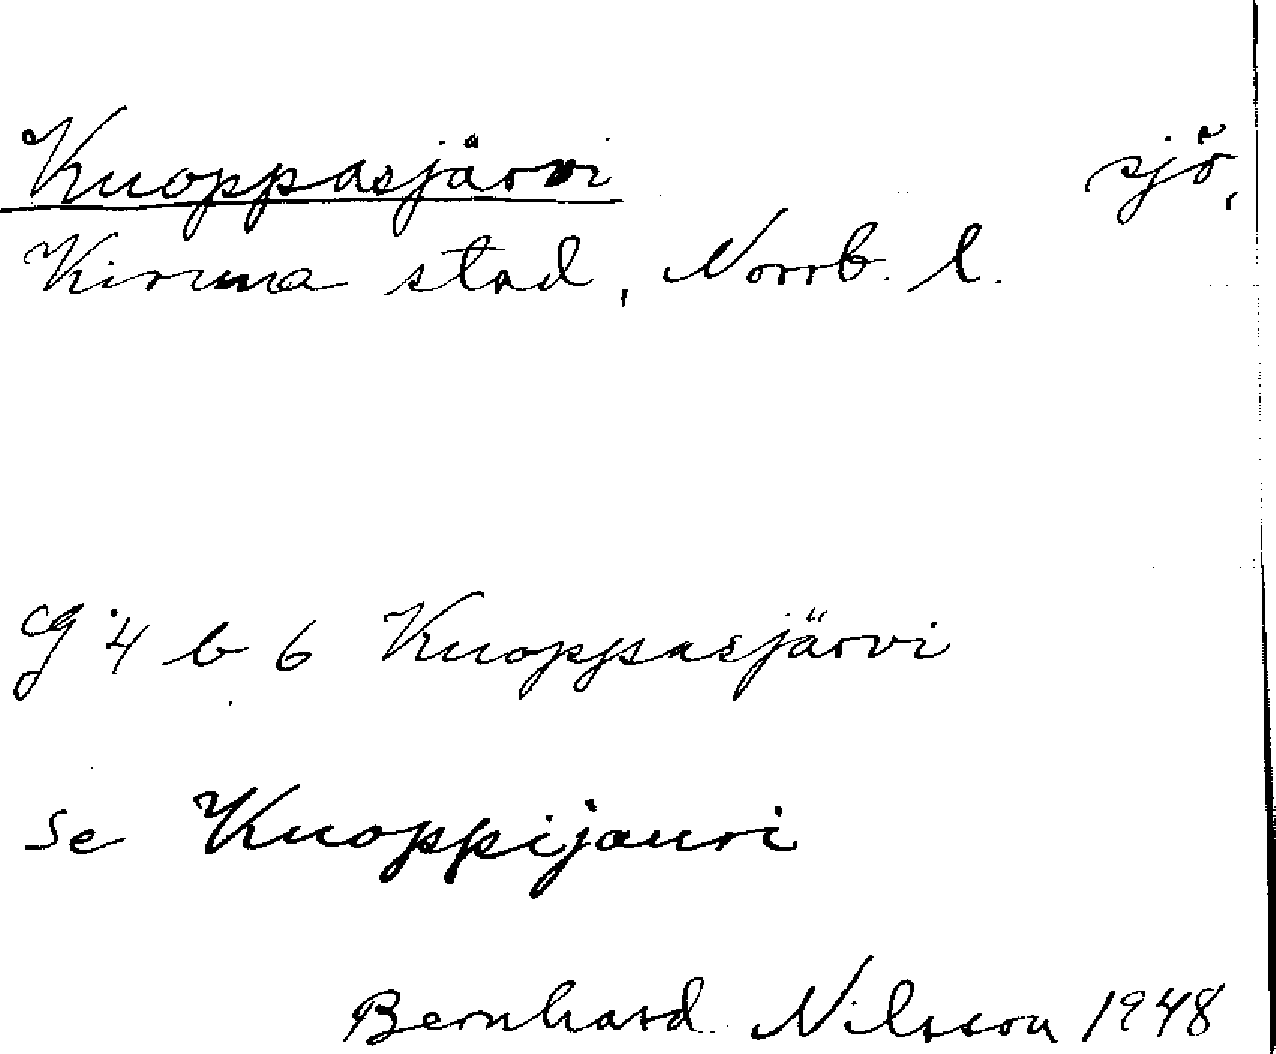 Kuoppasjärvi sjö,
Kiruna stad, Norrb. l.
G 4 b 6 Kuoppasjärvi
Se Kuoppijauri
Bernhard Nilsson 1948